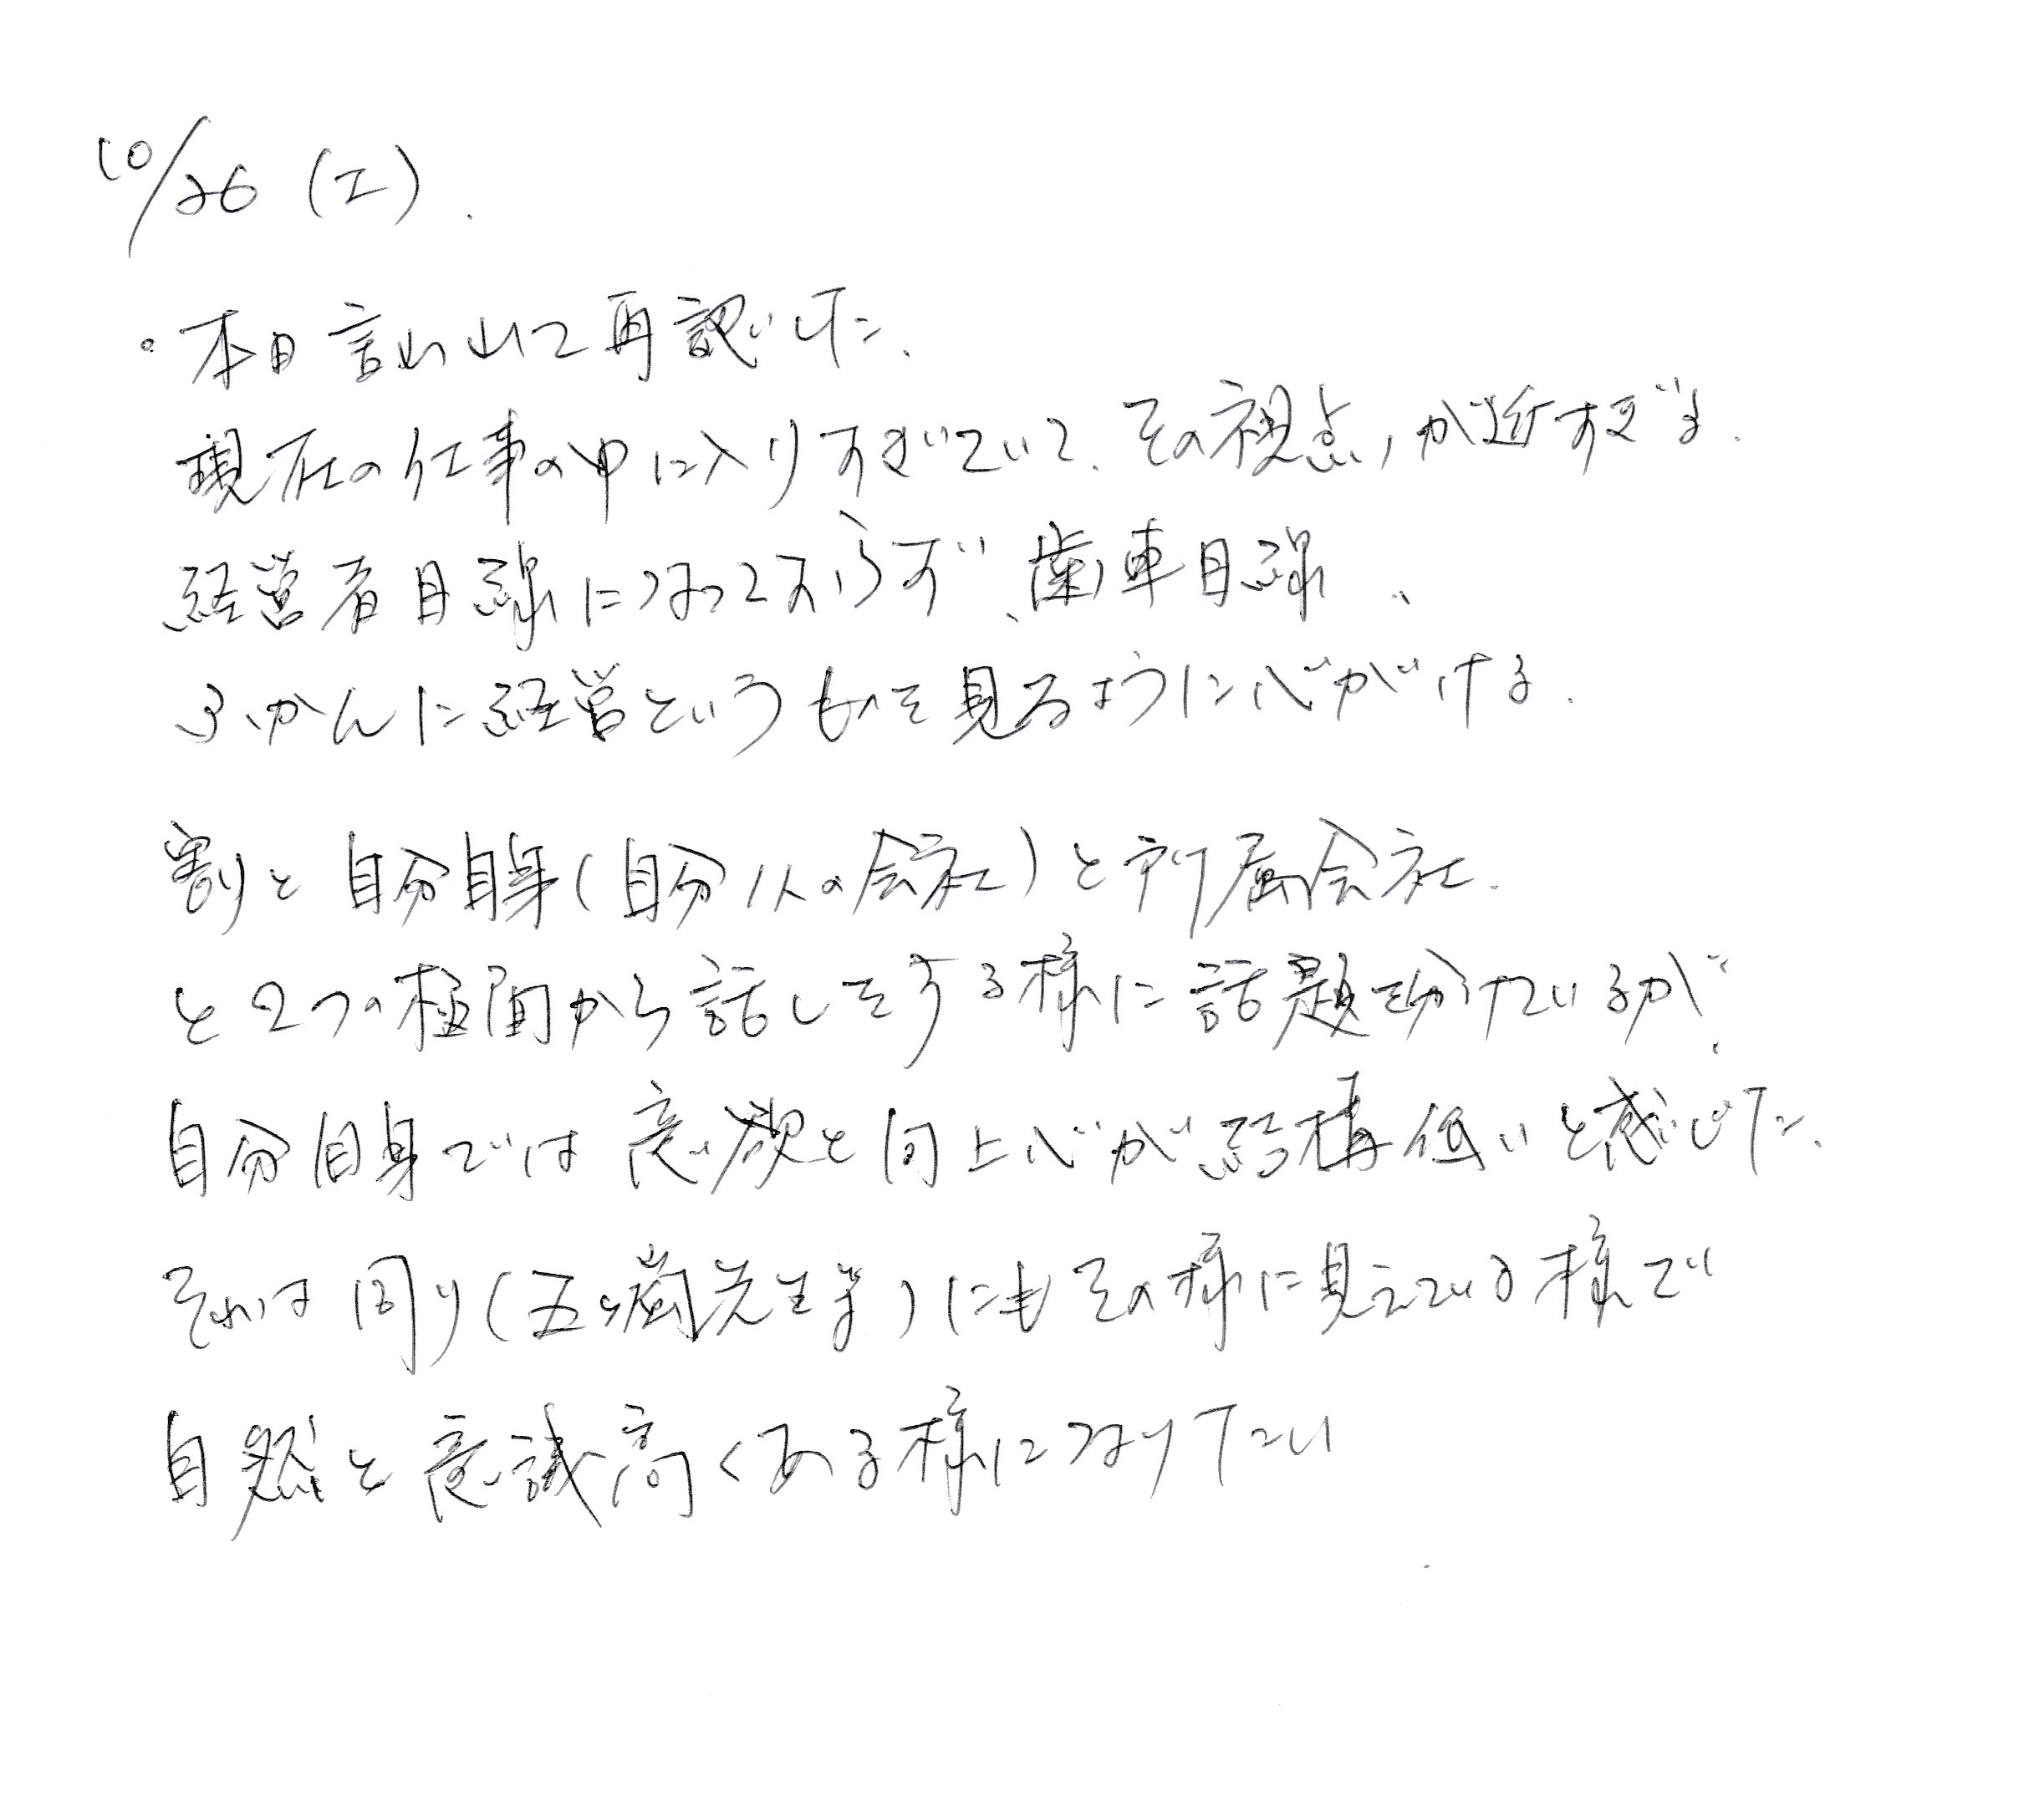 10/26 (土).
・本日言われて再認した.
現在の仕事の中に入りすぎていて、その視点が近すぎる.
経営者目線になっておらず、歯車目線、
ふかんに経営というものを見るように心がける.
割りと自分自身(自分1人の会社)と所属会社.
と2つの極面から話しをする様に話題を分けているが、
自分自身では意欲と向上心が結構低いと感じた.
それは周り(五ヶ 先生等)にもその様に見えている様で
自然と意識高くある様になりたい